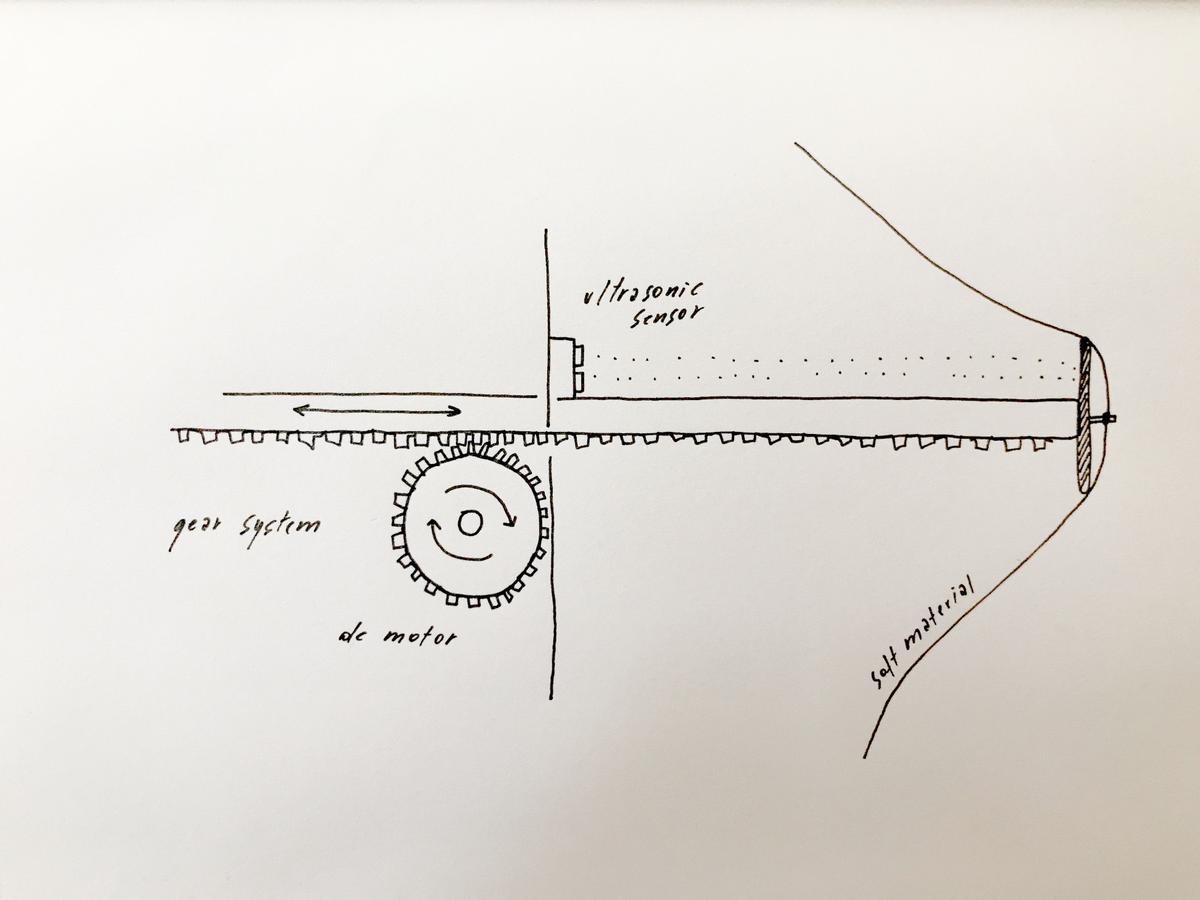 ultrasonic
sensor
gear system
dc motor
soft material